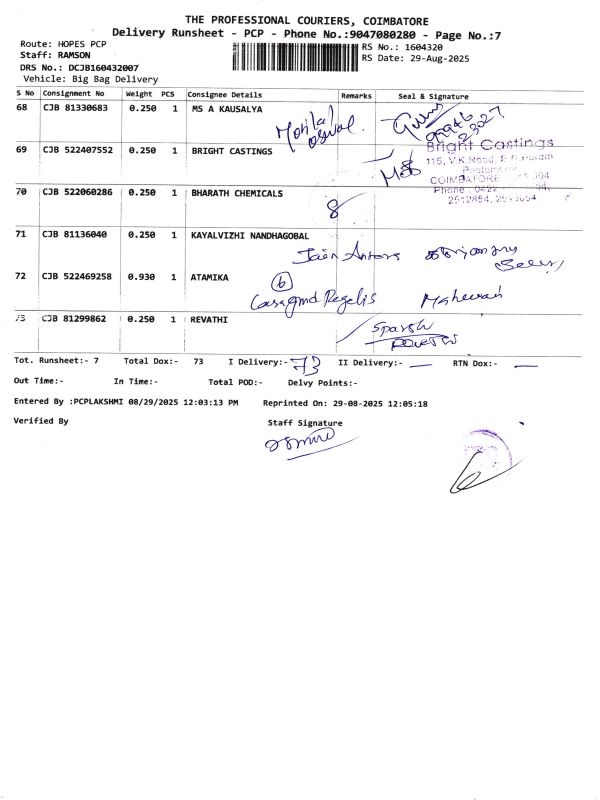 THE PROFESSIONAL COURIERS, COIMBATORE
Delivery Runsheet - PCP - Phone No.:9047080280 - Page No.:7
Route: HOPES PCP
Staff: RAMSON
DRS No.: DCJB160432007
Vehicle: Big Bag Delivery
RS No.: 1604320
RS Date: 29-Aug-2025
S No Consignment No Weight PCS Consignee Details Remarks Seal & Signature
68 CJB 81330683 0.250 1 MS A KAUSALYA
69 CJB 522407552 0.250 1 BRIGHT CASTINGS
Bright Castings
115, V.K.Road,
COIMBATORE
Phone
70 CJB 522060286 0.250 1 BHARATH CHEMICALS
8
71 CJB 81136040 0.250 1 KAYALVIZHI NANDHAGOBAL
72 CJB 522469258 0.930 1 ATAMIKA
6
73 CJB 81299862 0.250 1 REVATHI
Sparsh
Tot. Runsheet:- 7 Total Dox:- 73 I Delivery:- 73 II Delivery:- — RTN Dox:- —
Out Time:- In Time:- Total POD:- Delvy Points:-
Entered By :PCPLAKSHMI 08/29/2025 12:03:13 PM Reprinted On: 29-08-2025 12:05:18
Verified By Staff Signature